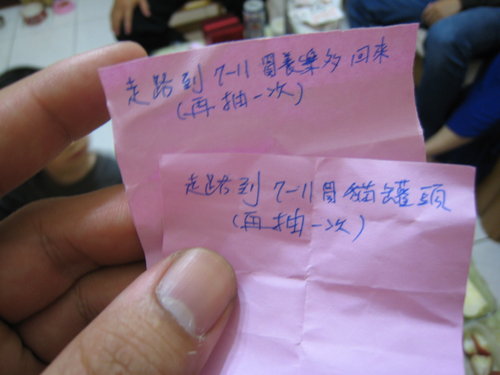 走路到 7-11 買養樂多 回來
(再抽一次)
走路到 7-11 買貓罐頭
(再抽一次)